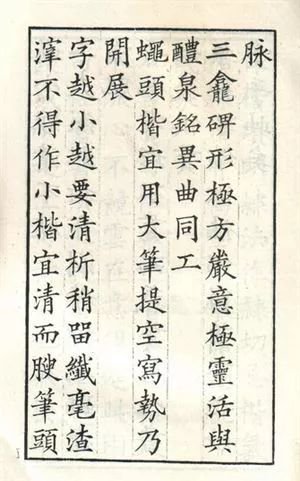 脉
三龕碑形極方嚴意極靈活與
醴泉銘異曲同工
蠅頭楷宜用大筆提空寫勢乃
開展
字越小越要清析稍留纖毫渣
滓不得作小楷宜清而腴筆頭